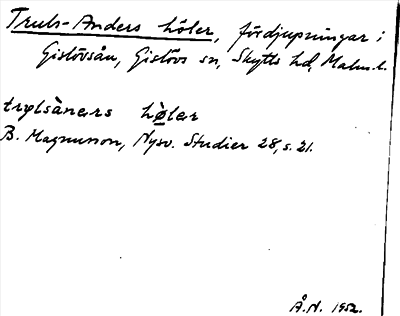 Truls-Anders höler, fördjupningar i
Gislövsån, Gislövs sn, Skytts hd, Malm. l.
trylsàners hø̀ler
B. Magnusson, Nysv. Studier 28, s. 21.
Å.N. 1952.